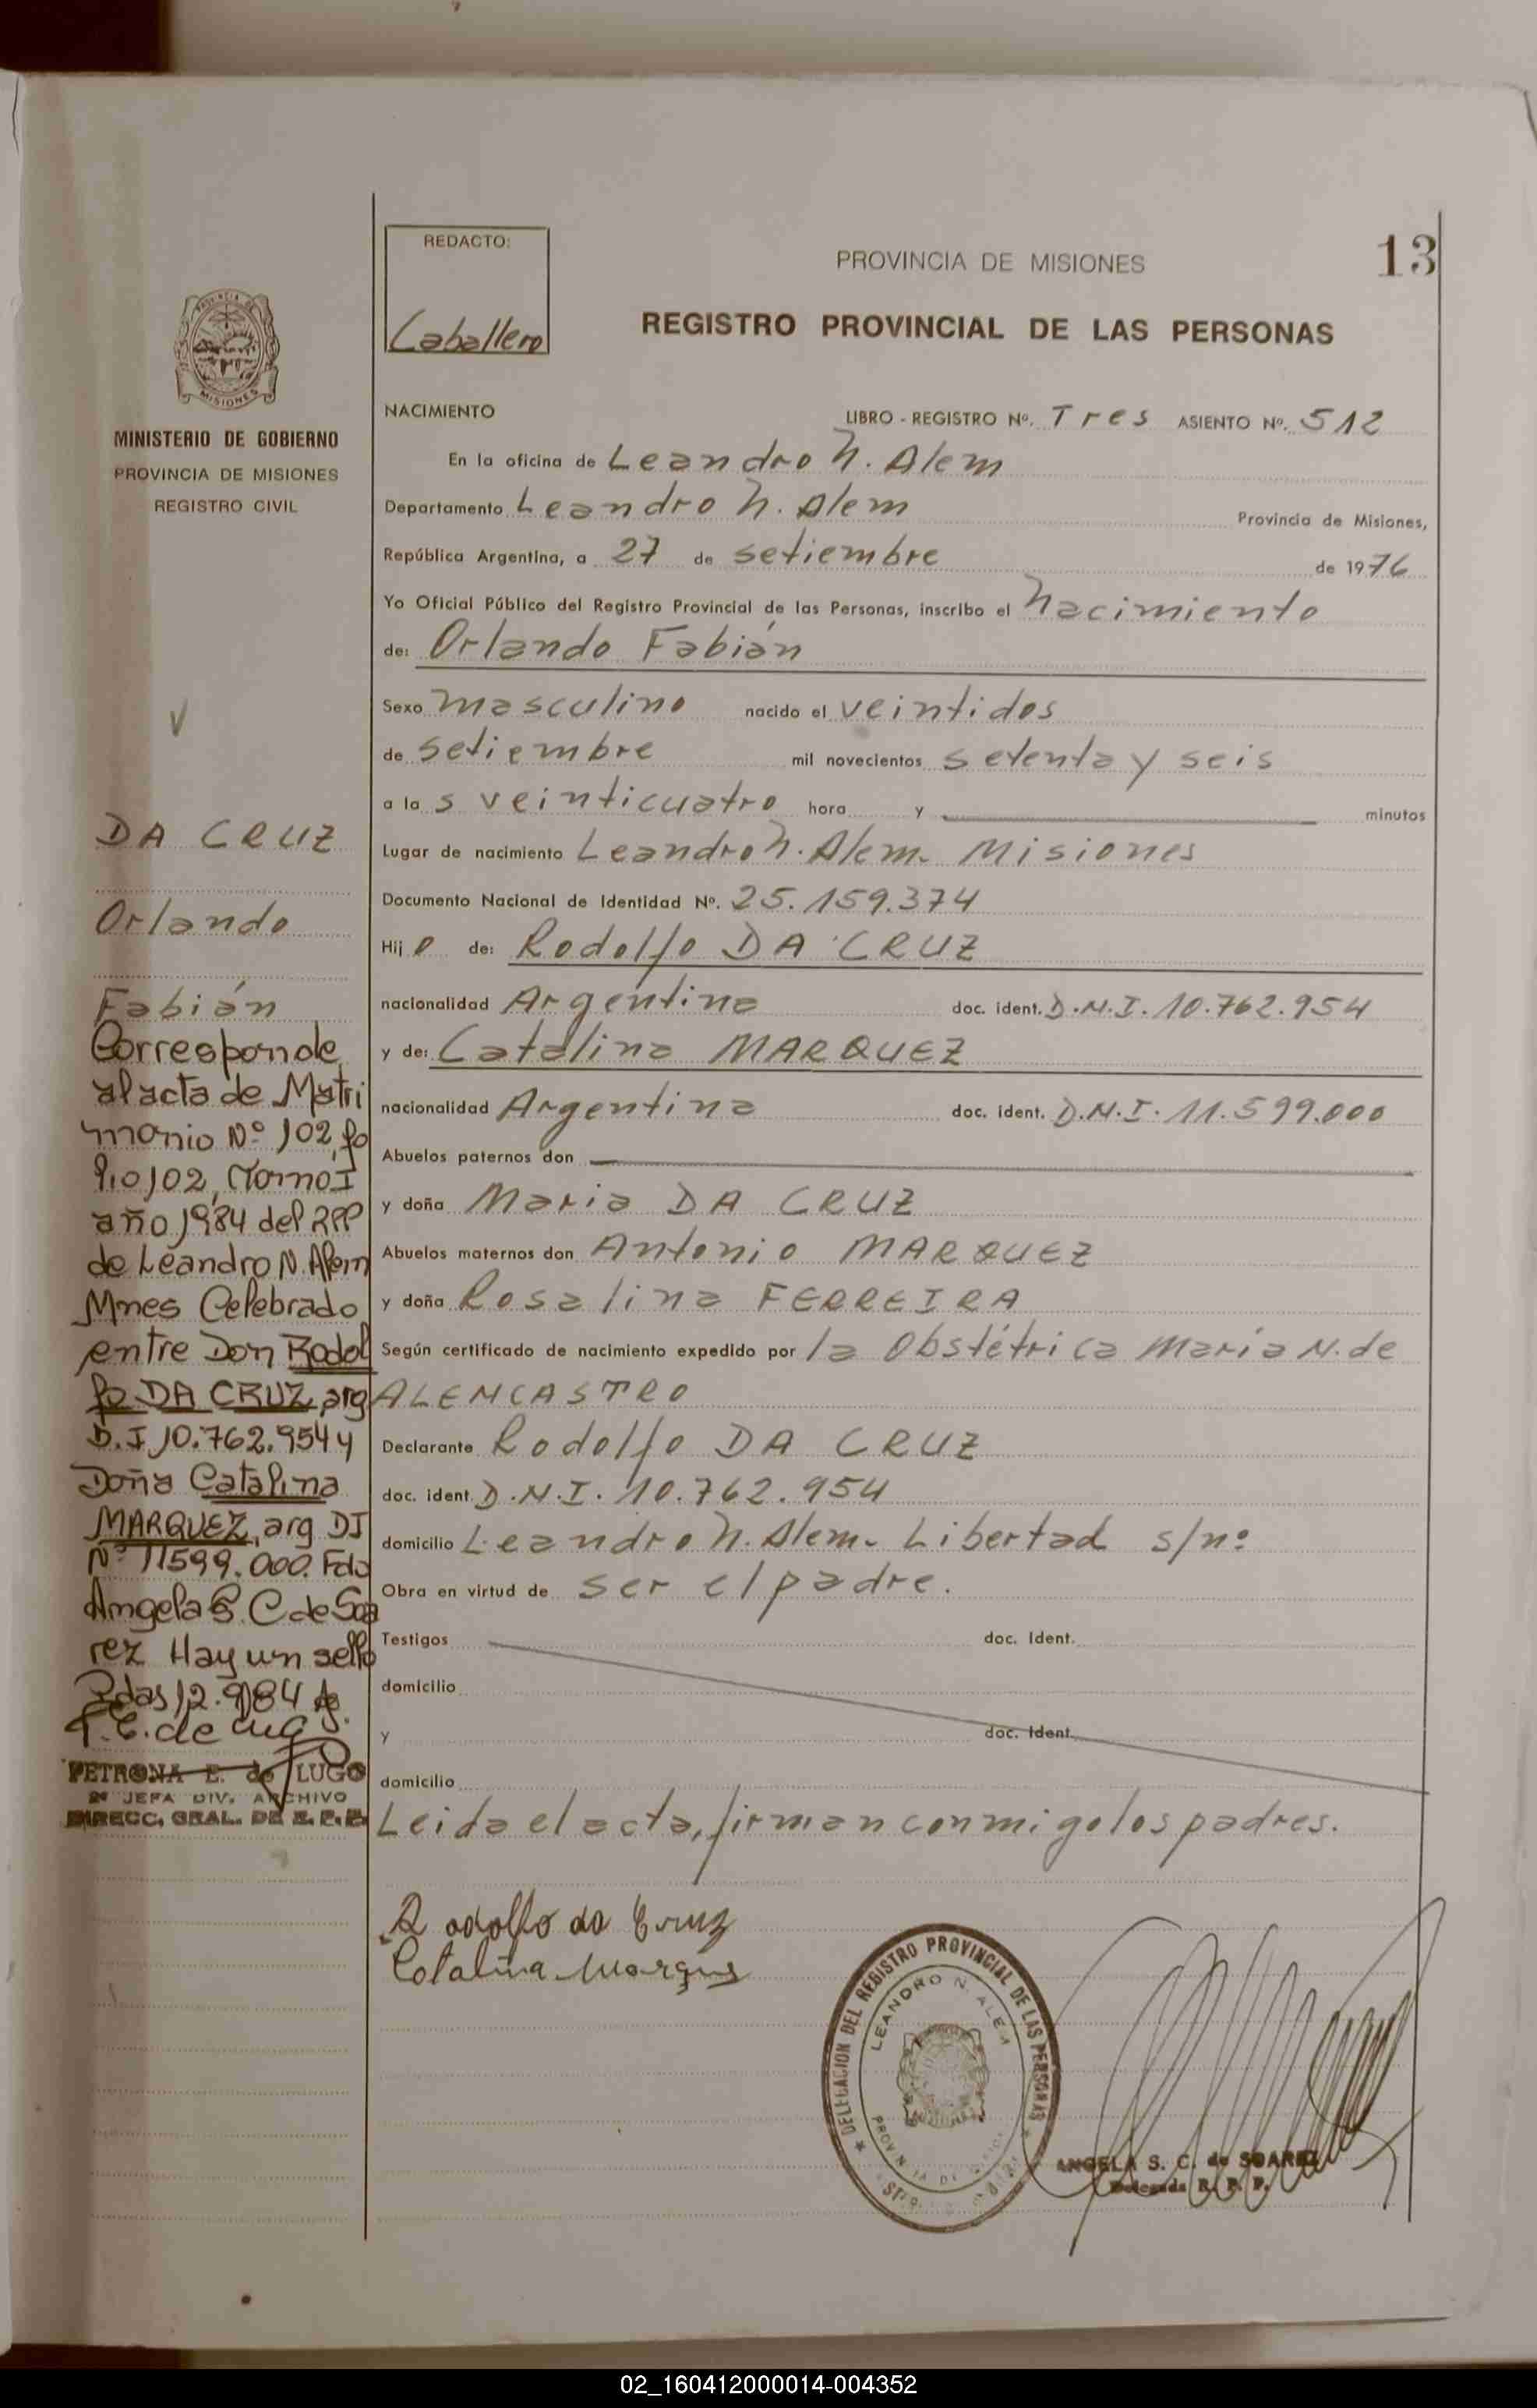 REDACTO:
Caballero
PROVINCIA DE MISIONES
13
REGISTRO PROVINCIAL DE LAS PERSONAS
MISIONES
MINISTERIO DE GOBIERNO
PROVINCIA DE MISIONES
REGISTRO CIVIL
NACIMIENTO
LIBRO - REGISTRO Nº. Tres ASIENTO Nº. 512
En la oficina de Leandro N. Alem
Departamento Leandro N. Alem Provincia de Misiones,
República Argentina, a 27 de setiembre de 1976
Yo Oficial Público del Registro Provincial de las Personas, inscribo el Nacimiento
de: Orlando Fabián
Sexo masculino nacido el veintidos
de setiembre mil novecientos setenta y seis
a la s veinticuatro hora y minutos
Lugar de nacimiento Leandro N. Alem. Misiones
Documento Nacional de Identidad Nº. 25.159.374
Hij o de: Rodolfo DA CRUZ
nacionalidad Argentina doc. ident. D.N.I. 10.762.954
y de: Catalina MARQUEZ
nacionalidad Argentina doc. ident. D.N.I. 11.599.000
Abuelos paternos don
y doña Maria DA CRUZ
Abuelos maternos don Antonio MARQUEZ
y doña Rosalina FERREIRA
Según certificado de nacimiento expedido por la Obstétrica María N. de
ALENCASTRO
Declarante Rodolfo DA CRUZ
doc. ident. D.N.I. 10.762.954
domicilio Leandro N. Alem. Libertad s/nº
Obra en virtud de ser el padre.
Testigos doc. Ident.
domicilio
y doc. Ident.
domicilio
Leida el acta, firman conmigo los padres.
DA CRUZ
Orlando
Fabián
Corresponde
al acta de Matri
monio Nº 102, fo
lio 102, Tomo I
año 1984 del RPP
de Leandro N. Alem
Mnes Celebrado
entre Don Rodol
fo DA CRUZ, arg
D.I 10.762.954 y
Doña Catalina
MARQUEZ, arg DI
Nº 11599.000. Fdo
Angela S. C de Soa
rez Hay un sello
Pdas 12.9.84
PETRONA E. de LUGO
2ª JEFA DIV. ARCHIVO
DIRECC. GRAL. DE R. P. P.
Rodolfo da Cruz
Catalina Marques
DELEGACION DEL REGISTRO PROVINCIAL DE LAS PERSONAS
LEANDRO N. ALEM
ANGELA S. C. de SOAREZ
Delegada R. P. P.
02_160412000014-004352